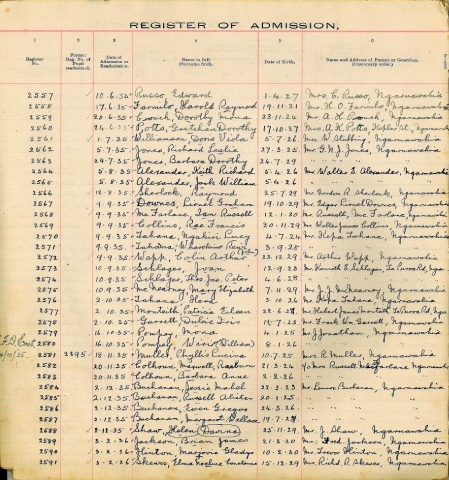 REGISTER OF ADMISSION.
1 2 3 4 5 6
Register No. Former Reg. No. of Pupil readmitted. Date of Admission or Readmission. Name in full (Surname first). Date of Birth. Name and Address of Parent or Guardian.
2557 10.6.35 Russo, Edward 1.4.27 Mrs. C. Russo, Ngaruawahia
2558 17.6.35 Farmilo, Harold Raymond 19.11.21 Mr. H. O. Farmilo, Ngaruawahia
2559 20.6.35 Couch, Dorothy Mona 23.11.26 Mr. A. H. Couch, Ngaruawahia
2560 24.6.35 Potts, Gretchen Dorothy 17.10.27 Mrs. A. K. Potts, Ngaruawahia
2561 1.7.35 Williamson, Doris Viola 5.7.26 Mr. Ngaruawahia
2562 5.7.35 Jones, Richard Leslie 27.3.25 Mr. Jones, Ngaruawahia
2563 24.7.35 Jones, Barbara Dorothy 24.7.29 " "
2564 5.8.35 Alexander, Keith Richard 5.4.26 Mr. Walter E. Alexander, Ngaruawahia
2565 5.8.35 Alexander, Jack William 5.4.26 " "
2566 12.8.35 Sherlock, Raymond 25.7.29 Mr. Gordon R. Sherlock, Ngaruawahia
2567 9.9.35 Downes, Lionel Graham 19.10.29 Mr. Edgar Lionel Downes, Ngaruawahia
2568 9.9.35 McFarlane, Ian Russell 12.1.30 Mr. Russell McFarlane, Ngaruawahia
2569 9.9.35 Collins, Rae Francis 20.11.29 Mr. Walter James Collins, Ngaruawahia
2570 9.9.35 Tahana, Ngakiri Percy 4.7.24 Mr. Kepa Tahana, Ngaruawahia
2571 9.9.35 Tahana, 3.9.25 " "
2572 9.9.35 Wapp, Colin Arthur 23.12.29 Mr. Arthur Wapp, Ngaruawahia
2573 10.9.35 Schlager, Joan 12.9.28 Mr. Kenneth E. Schlager, Ngaruawahia
2574 10.9.35 Schlager, Peter 4.6.28 " "
2575 10.9.35 McNearney, Mary Elizabeth 7.11.29 Mr. J. J. McNearney, Ngaruawahia
2576 2.10.35 Tahana, 3.10.26 Mr. Kepa Tahana, Ngaruawahia
2577 2.10.35 Monteith, Patricia Eileen 22.6.28 Mr. Hubert James Monteith
2578 2.10.35 Garrett, Dulcie Iris 14.7.23 Mr. Frank Wm. Garrett, Ngaruawahia
2579 16.10.35 Pompey, Mona 4.1.25 Mr. Jonathan, Ngaruawahia
2580 16.10.35 Pompey, Wirin (William) 8.1.26 " "
2581 2295 18.11.35 Muller, Phyllis Lucina 10.7.25 Mrs. R. Muller, Ngaruawahia
2582 20.11.35 Colhoun, Maxwell Rayburn 21.3.26 c/o Mrs. Russell McFarlane, Ngaruawahia
2583 20.11.35 Colhoun, Barbara Anne 2.2.26 " "
2584 2.12.35 Buchanan, Jessie Mabel 22.3.23 Mr. Buchanan, Ngaruawahia
2585 2.12.35 Buchanan, Russell Alister 20.1.25 " "
2586 2.12.35 Buchanan, Ewen Gregor 24.3.26 " "
2587 2.12.35 Buchanan, Margaret Wallace 19.7.29 " "
2588 8.12.35 Shaw, Helen Davina 25.11.29 Mr. J. Shaw, Ngaruawahia
2589 3.2.36 Jackson, Brian James 21.3.30 Mr. Fred. Jackson, Ngaruawahia
2590 3.2.36 Hinton, Marjorie Gladys 10.2.30 Mr. Trevor Hinton, Ngaruawahia
2591 3.2.36 Skeaws, Elma Noeline Constance 15.12.29 Mr. Richd. A. Skeaws, Ngaruawahia